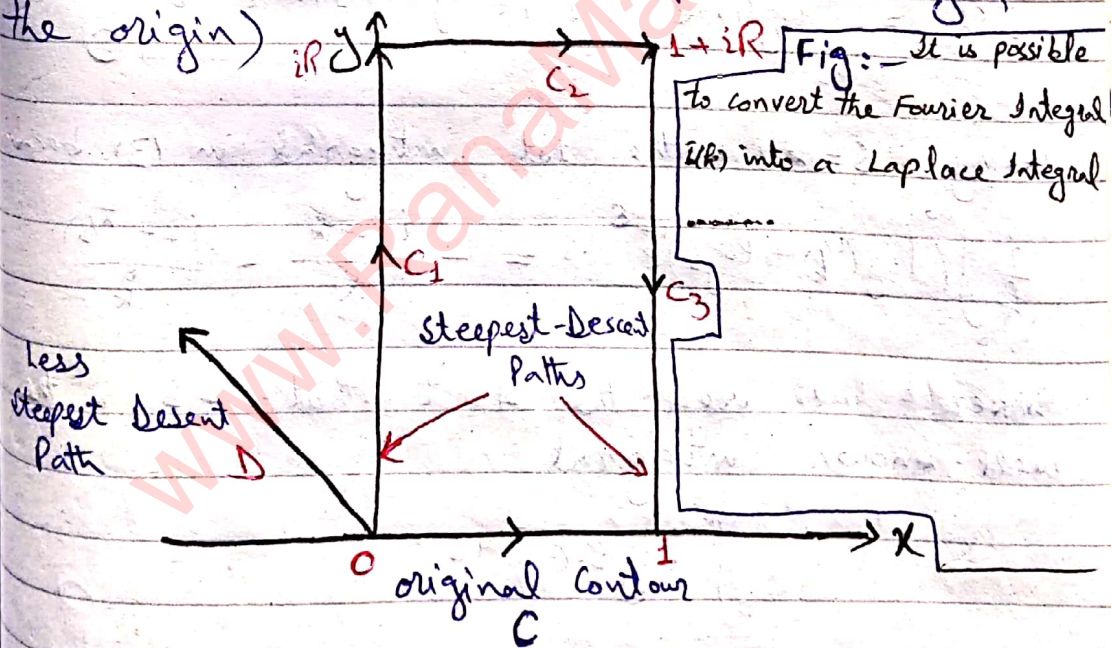 the origin)
iR y
1 + iR
C2
Fig:- It is possible
to convert the Fourier Integral
I(k) into a Laplace Integral
.........
C1
C3
Steepest-Descent
Paths
Less
Steepest Desent
Path
D
0
1
x
original Contour
C
www.RanaMa